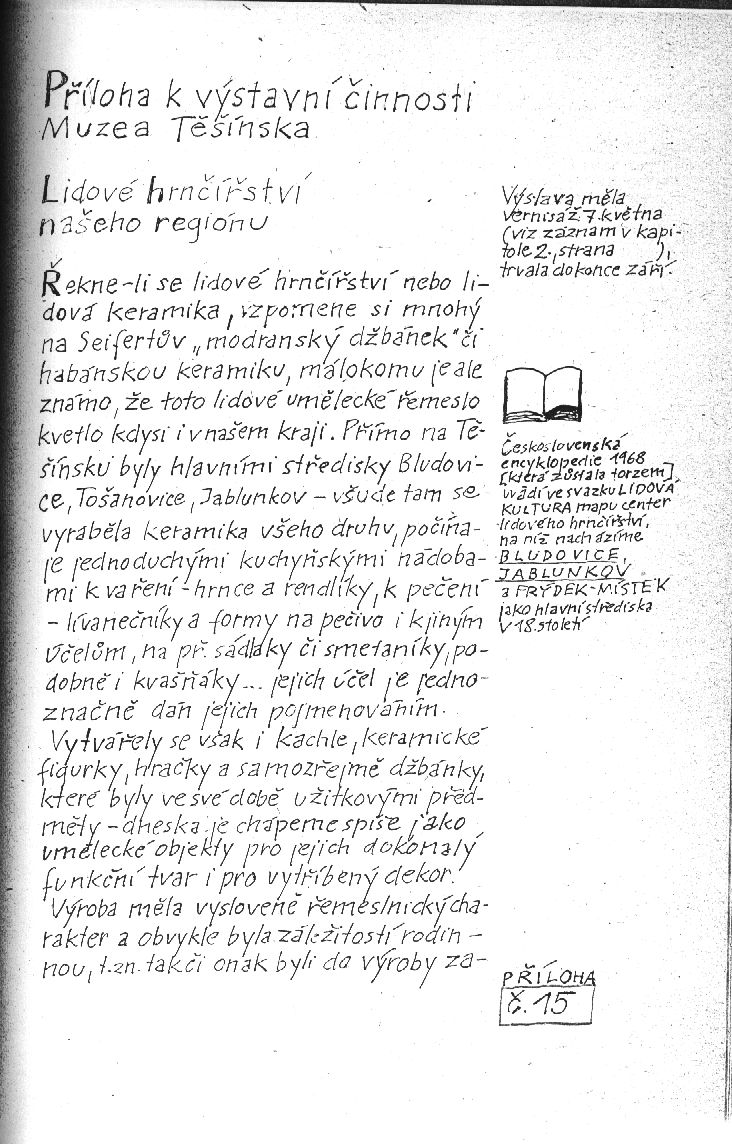 Příloha k výstavní činnosti
Muzea Těšínska
Lidové hrnčířství
našeho regionu
Řekne-li se lidové hrnčířství nebo li-
dová keramika, vzpomene si mnohý
na Seifertův „modranský džbánek" či
habánskou keramiku, málokomu je ale
známo, že toto lidové umělecké řemeslo
kvetlo kdysi i v našem kraji. Přímo na Tě-
šínsku byly hlavními středisky Bludovi-
ce, Tošanovice, Jablunkov – všude tam se
vyráběla keramika všeho druhu, počína-
je jednoduchými kuchyňskými nádoba-
mi k vaření – hrnce a rendlíky, k pečení
– lívanečníky a formy na pečivo i k jiným
účelům, na př. sádláky či smetaníky, po-
dobně i kvašňáky... jejich účel je jedno-
značně dán jejich pojmenováním.
Vytvářely se však i kachle, keramické
figurky, hračky a samozřejmě džbánky,
které byly ve své době užitkovými před-
měty – dneska je chápeme spíše jako
umělecké objekty pro jejich dokonalý
funkční tvar i pro vytříbený dekor.
Výroba měla vysloveně řemeslnický cha-
rakter a obvykle byla záležitostí rodin-
nou, t.zn. tak či onak byli do výroby za-
Výstava měla
vernisáž 7. května
(viz záznam v kapi-
tole 2., strana ),
trvala do konce září.
Československá
encyklopedie 1968
[která zůstala torzem]
uvádí ve svazku LIDOVÁ
KULTURA mapu center
lidového hrnčířství,
na níž nacházíme
BLUDOVICE,
JABLUNKOV
a FRÝDEK-MÍSTEK
jako hlavní střediska
v 18. století
PŘÍLOHA
č. 15